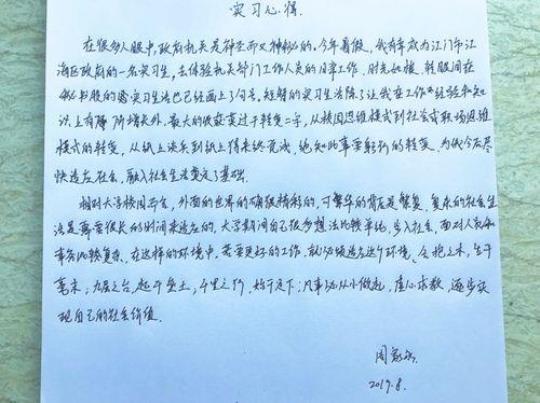 实习心得.
在很多人眼中,政府机关是神圣而又神秘的。今年暑假,我有幸成为江门市江
海区政府的一名实习生,去体验机关部门工作人员的日常工作。时光如梭,转眼间在
秘书股的实习生活已经画上了句号。短暂的实习生活除了让我在工作经验和知
识上有所增长外,最大的收获莫过于转变二字,从校园思维模式到社会或职场思维
模式的转变,从纸上谈兵到纸上得来终觉浅,绝知此事要躬行的转变,为我今后尽
快适应社会,融入社会生活奠定了基础.
相对大学校园而言,外面的世界的确很精彩的,可繁华的背后是繁复,复杂的社会生
活是需要很长的时间来适应的.大学期间自己很多想法比较单纯,步入社会,面对人和
事都比较复杂.在这样的环境中,若要更好的工作,就必须适应这个环境.合抱之木,生于
毫末;九层之台,起于垒土;千里之行,始于足下;凡事必从小做起,虚心求教,逐步实
现自己的社会价值.
周家
2019.8.